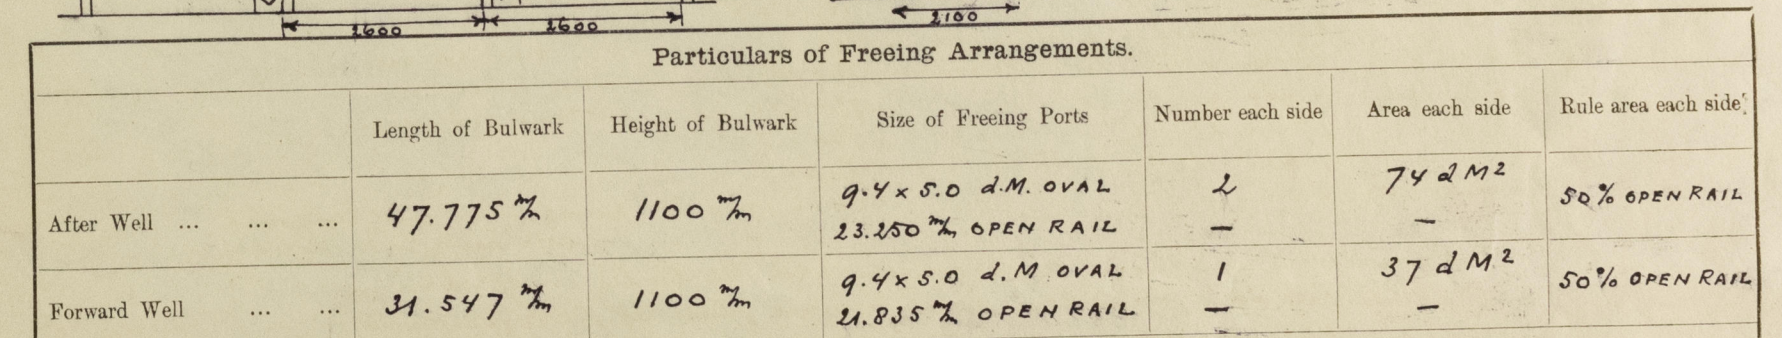 2600 2600 2100
Particulars of Freeing Arrangements.
Length of Bulwark Height of Bulwark Size of Freeing Ports Number each side Area each side Rule area each side
After Well ... ... ... 47.775 m/m 1100 m/m 9.4 x 5.0 d.M. OVAL 2 74 d M² 50% OPEN RAIL
23.250 m/m OPEN RAIL — —
Forward Well ... ... 31.547 m/m 1100 m/m 9.4 x 5.0 d.M OVAL 1 37 d M² 50% OPEN RAIL
21.835 m/m OPEN RAIL — —